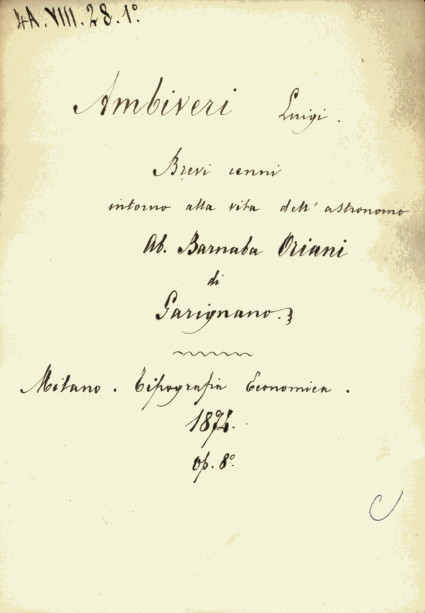 4A.VIII.28.1°
Ambiveri Luigi.
Brevi cenni
intorno alla vita dell'astronomo
Ab. Barnaba Oriani
di
Garignano.
Milano. Tipografia Economica.
1874.
op. 8°.